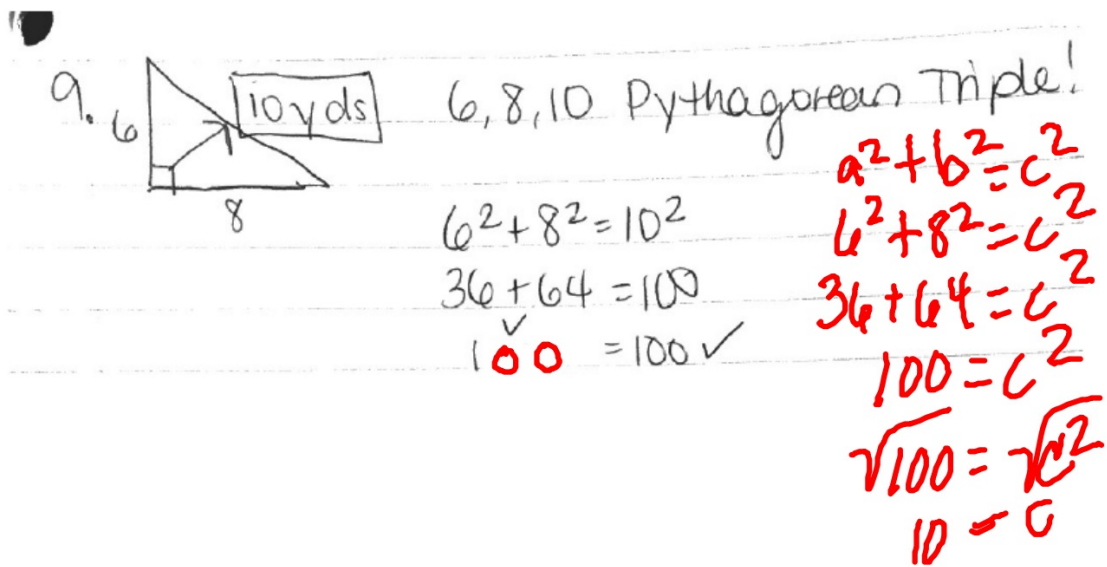 9. 6 10 yds 6, 8, 10 Pythagorean Triple!
8
6² + 8² = 10²
36 + 64 = 100
100 = 100 ✓
a² + b² = c²
6² + 8² = c²
36 + 64 = c²
100 = c²
√100 = √c²
10 = c